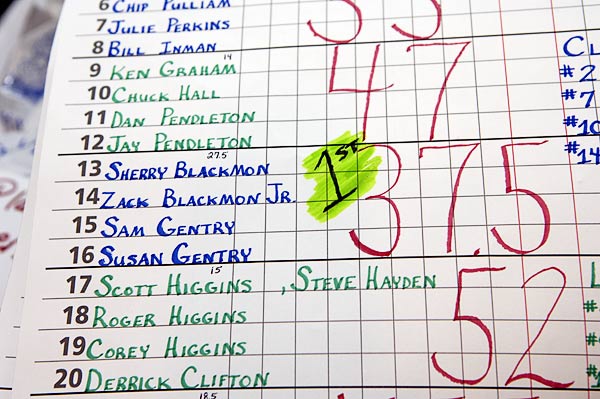 6 CHIP PULLIAM
7 JULIE PERKINS
8 BILL INMAN
14
9 KEN GRAHAM
10 CHUCK HALL
11 DAN PENDLETON
12 JAY PENDLETON
47
27.5
13 SHERRY BLACKMON
14 ZACK BLACKMON JR.
15 SAM GENTRY
16 SUSAN GENTRY
1ST
37.5
15
17 SCOTT HIGGINS , STEVE HAYDEN
18 ROGER HIGGINS
19 COREY HIGGINS
20 DERRICK CLIFTON
52
18.5
#2
#7
#10
#14